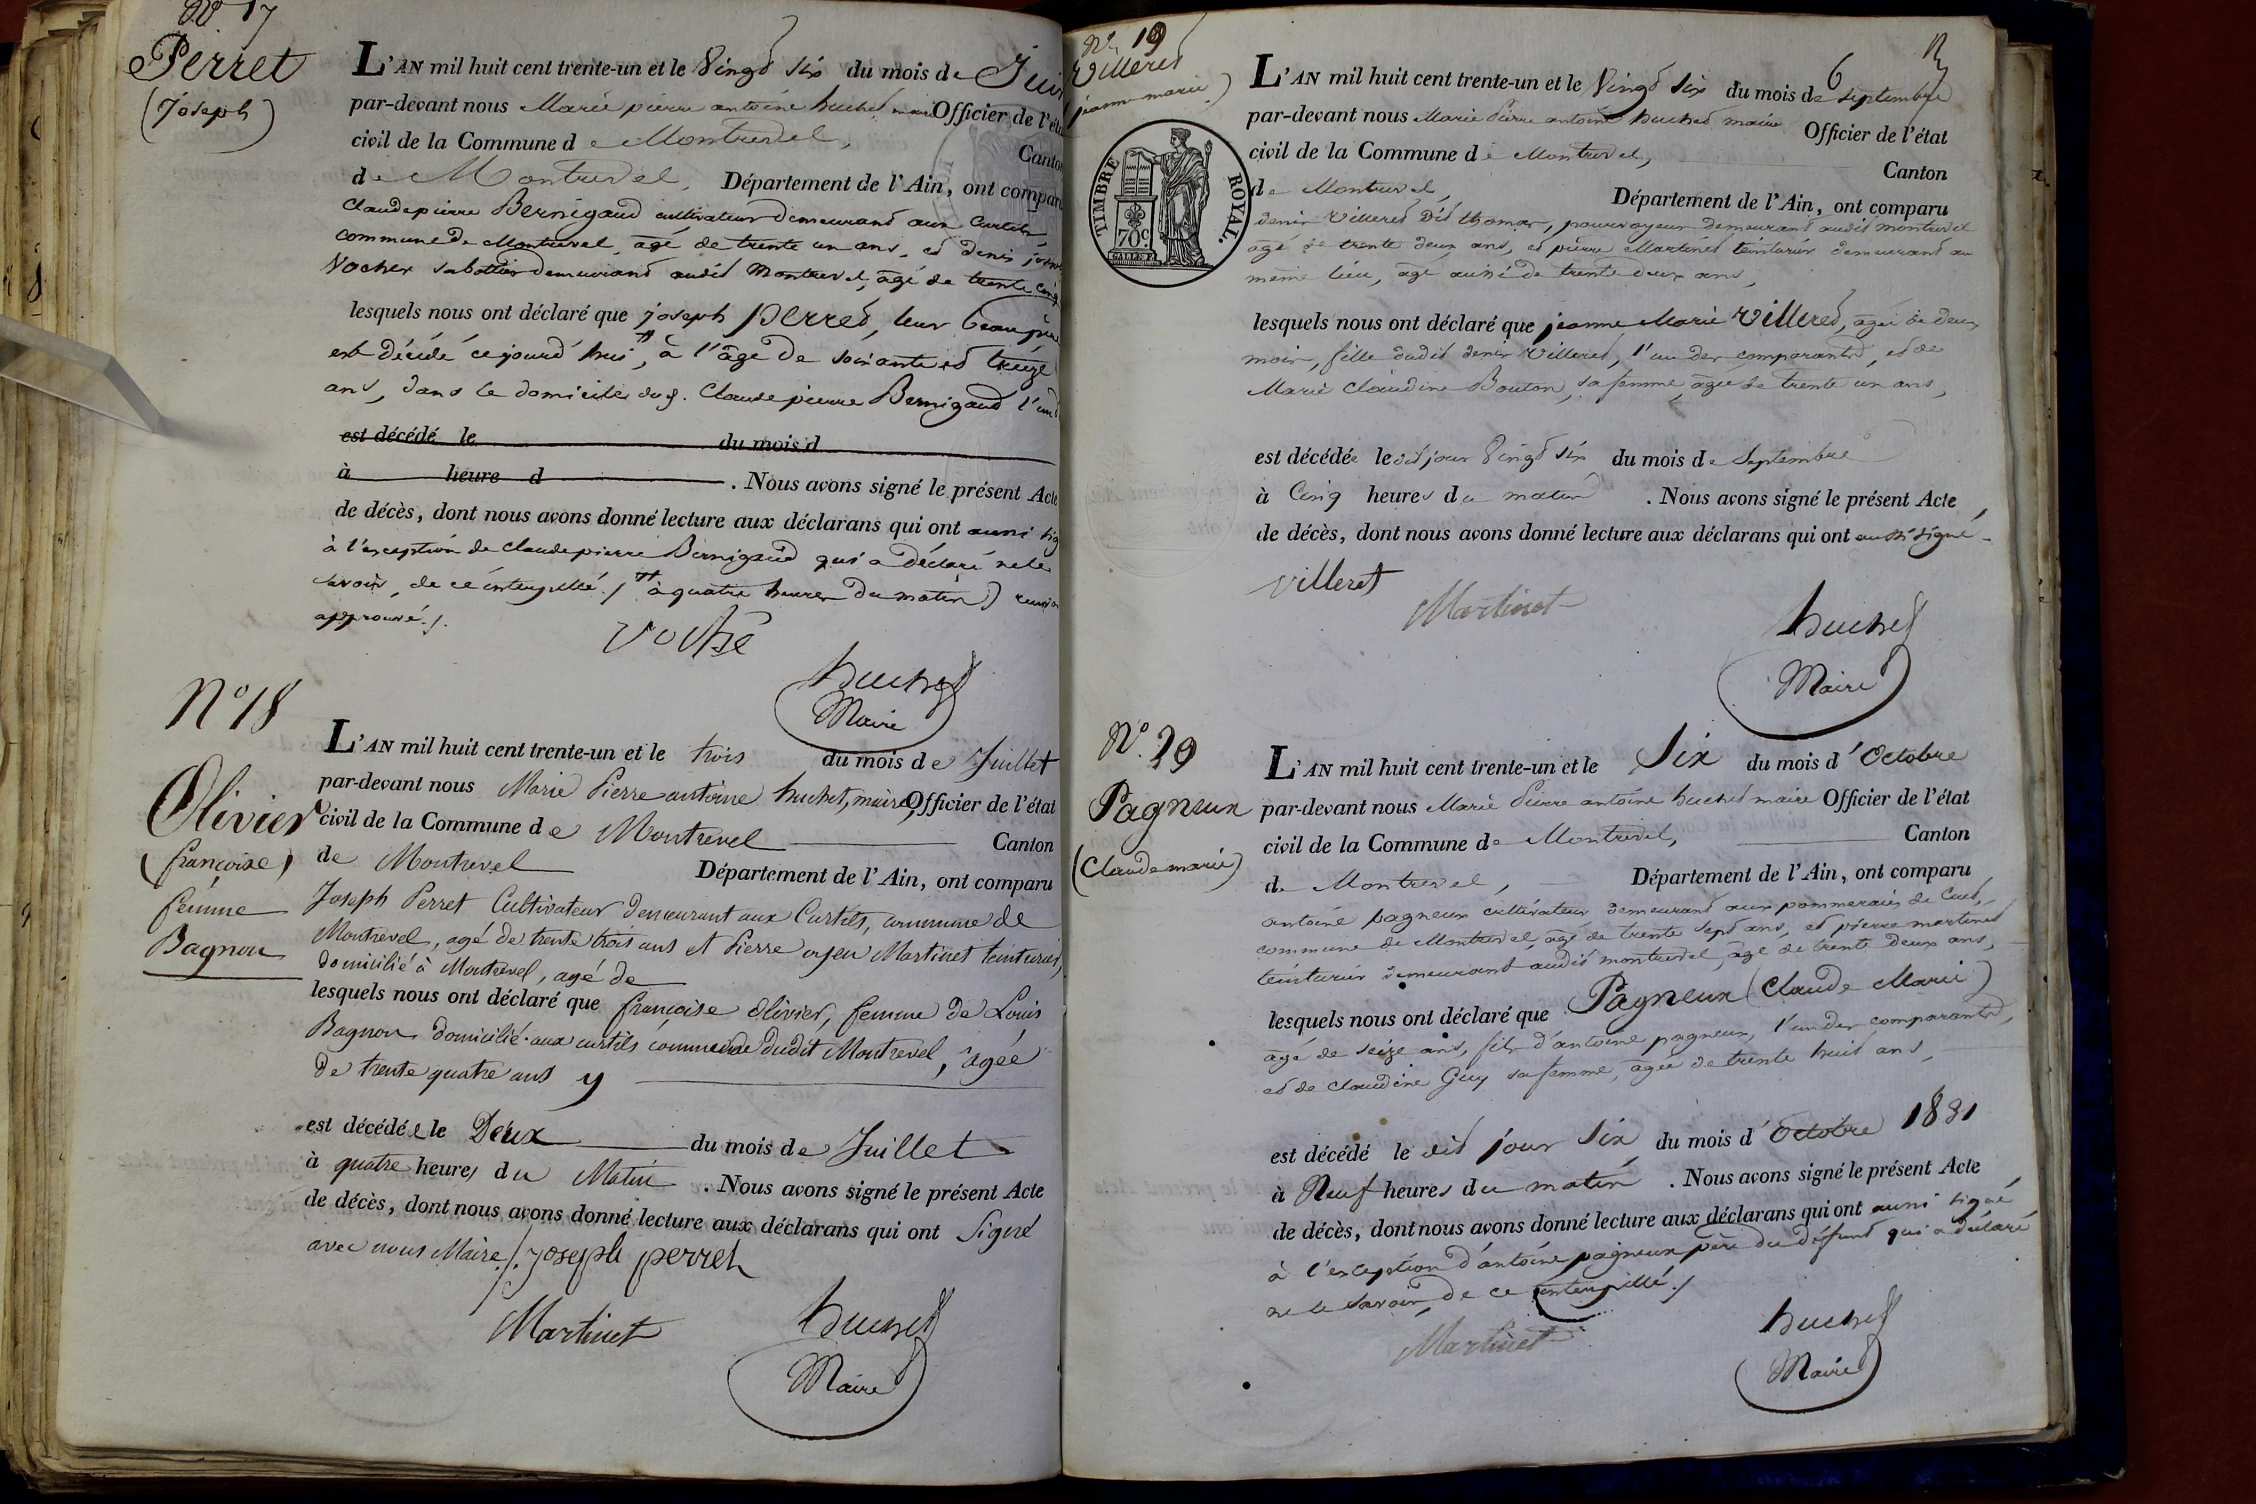 Nº 17
Perret
(Joseph)
L'AN mil huit cent trente-un et le Vingt six du mois de Juin
par-devant nous Marie pierre antoine huchet maire Officier de l'éta
civil de la Commune de Montrevel, Canton
de Montrevel, Département de l'Ain, ont comparu
Claude pierre Bernigaud cultivateur demeurant aux Curtils
commune de Montrevel, agé de trente un ans, et denis
Vocher sabottier demeurant audit Montrevel, agé de trente cinq
lesquels nous ont déclaré que joseph perret, leur beau père
est décédé ce jourd'hui, à l'âge de soixante et treize
ans, dans le domicile du s. Claude pierre Bernigaud l'un d
est décédé le du mois d
à heure d . Nous avons signé le présent Acte
de décès, dont nous avons donné lecture aux déclarans qui ont aussi sig
à l'exception de Claude pierre Bernigaud qui a déclaré ne le
savoir, de ce interpellé./ à quatre heures du matin) renvoi
approuvé./.
Voché
huchet
Maire
Nº 18
Olivier
(françoise)
femme
Bagnon
L'AN mil huit cent trente-un et le trois du mois de Juillet
par-devant nous Marie Pierre antoine huchet, maire, Officier de l'état
civil de la Commune de Montrevel Canton
de Montrevel Département de l'Ain, ont comparu
Joseph Perret Cultivateur demeurant aux Curtils, commune de
Montrevel, agé de trente trois ans et Pierre Martinet teinturier,
domicilié à Montrevel, agé de
lesquels nous ont déclaré que françoise Olivier, femme de Louis
Bagnon domicilié aux curtils commune dudit Montrevel, agée
de trente quatre ans
est décédée le Deux du mois de Juillet
à quatre heures du Matin . Nous avons signé le présent Acte
de décès, dont nous avons donné lecture aux déclarans qui ont Signé
avec nous Maire./. joseph perret
Martinet
huchet
Maire
Nº 19
Villeret
(jeanne marie)
TIMBRE ROYAL.
70c
6
L'AN mil huit cent trente-un et le Vingt six du mois de septembre
par-devant nous Marie Pierre antoine huchet maire Officier de l'état
civil de la Commune de Montrevel, Canton
de Montrevel, Département de l'Ain, ont comparu
denis Villeret dit thomas, pourvoyeur demeurant audit montrevel
agé de trente deux ans, et pierre Martinet teinturier demeurant au
même lieu, agé aussi de trente deux ans,
lesquels nous ont déclaré que jeanne Marie Villeret, agée de deux
mois, fille dudit denis Villeret, l'un des comparants, et de
Marie Claudine Bouton, sa femme, agée de trente un ans,
est décédée le dit jour Vingt six du mois de Septembre
à Cinq heures du matin . Nous avons signé le présent Acte
de décès, dont nous avons donné lecture aux déclarans qui ont aussi signé
Villeret
Martinet
huchet
Maire
Nº. 20
Pagneux
(Claude marie)
L'AN mil huit cent trente-un et le Six du mois d'Octobre
par-devant nous Marie Pierre antoine huchet maire Officier de l'état
civil de la Commune de Montrevel, Canton
de Montrevel, Département de l'Ain, ont comparu
antoine pagneux cultivateur demeurant aux pommerais de Cuet,
commune de Montrevel, agé de trente sept ans, et pierre martinet
teinturier demeurant audit montrevel, agé de trente deux ans,
lesquels nous ont déclaré que Pagneux (Claude Marie)
agé de seize ans, fils d'antoine pagneux, l'un des comparants,
et de claudine Guy sa femme, agée de trente huit ans,
est décédé le dit jour Six du mois d'Octobre 1831
à Neuf heures du matin . Nous avons signé le présent Acte
de décès, dont nous avons donné lecture aux déclarans qui ont aussi signé
à l'exception d'antoine pagneux père du défunt qui a déclaré
ne le savoir, de ce interpillé./
Martinet
huchet
Maire